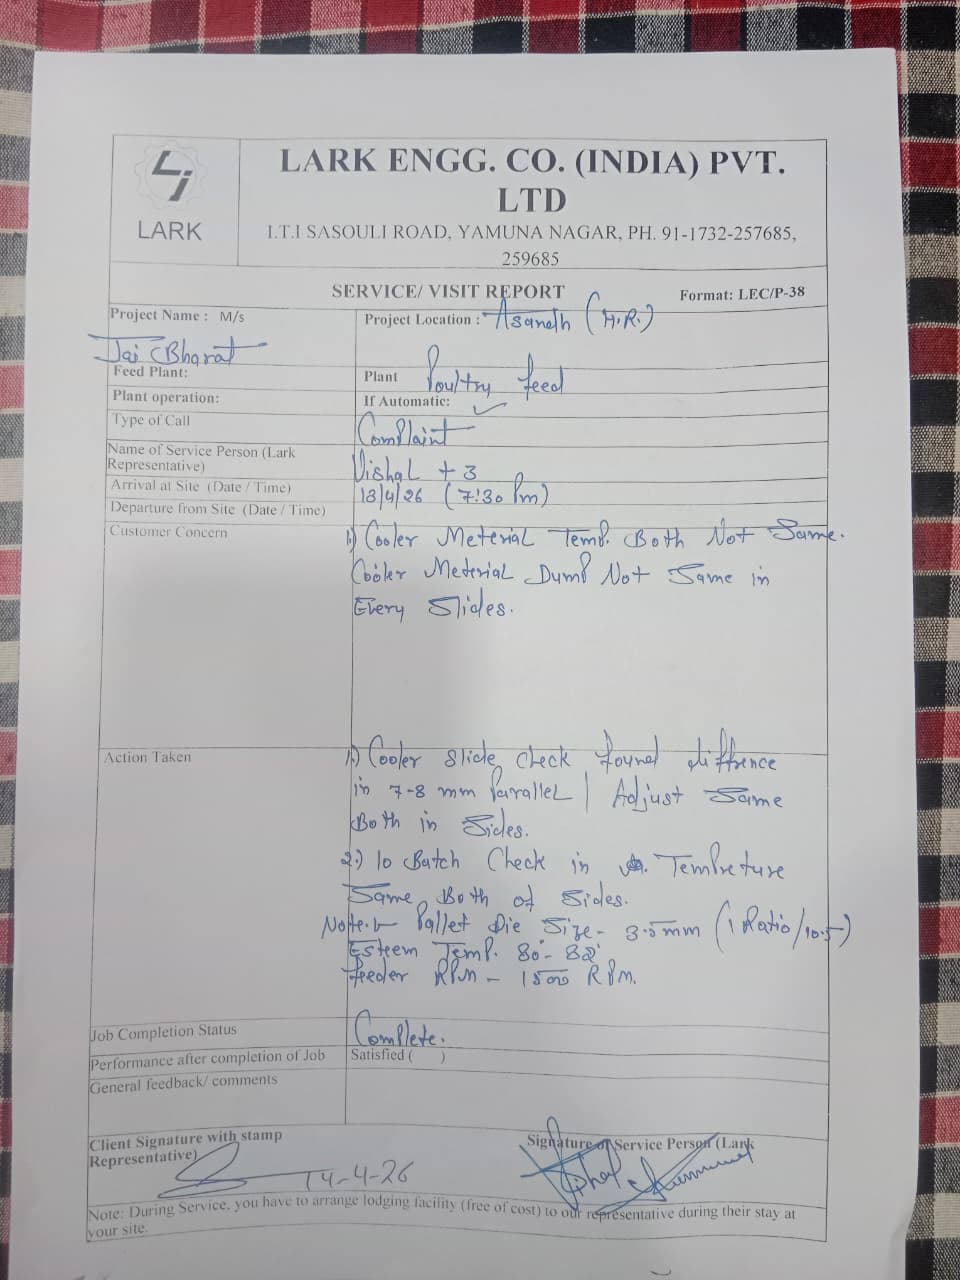 LARK
LARK ENGG. CO. (INDIA) PVT.
LTD
I.T.I SASOULI ROAD, YAMUNA NAGAR, PH. 91-1732-257685,
259685
SERVICE/ VISIT REPORT
Format: LEC/P-38
Project Name : M/s
Jai Bharat
Project Location : Asandh (H.R.)
Feed Plant:
Plant Poultry feed
Plant operation:
If Automatic: ✓
Type of Call
Complaint
Name of Service Person (Lark
Representative)
Vishal + 3
Arrival at Site (Date / Time)
13/4/26 (7:30 Pm)
Departure from Site (Date / Time)
Customer Concern
1) Cooler Meterial Temp. Both Not Same.
Cooler Meterial Dump Not Same in
Every Slides.
Action Taken
1.) Cooler Slide Check found diffrence
in 7-8 mm Parallel | Adjust Same
Both in Sides.
2.) 10 Batch Check in Tempreture
Same Both of Sides.
Note:- Pallet Die Size - 3.5mm (1 Ratio/10.5)
Esteem Temp. 80°- 82°
feeder RPM - 1500 RPM.
Job Completion Status
Complete.
Performance after completion of Job
Satisfied ( )
General feedback/ comments
Client Signature with stamp
Representative)
14-4-26
Signature of Service Person (Lark
Vishal
Note: During Service, you have to arrange lodging facility (free of cost) to our representative during their stay at
your site.